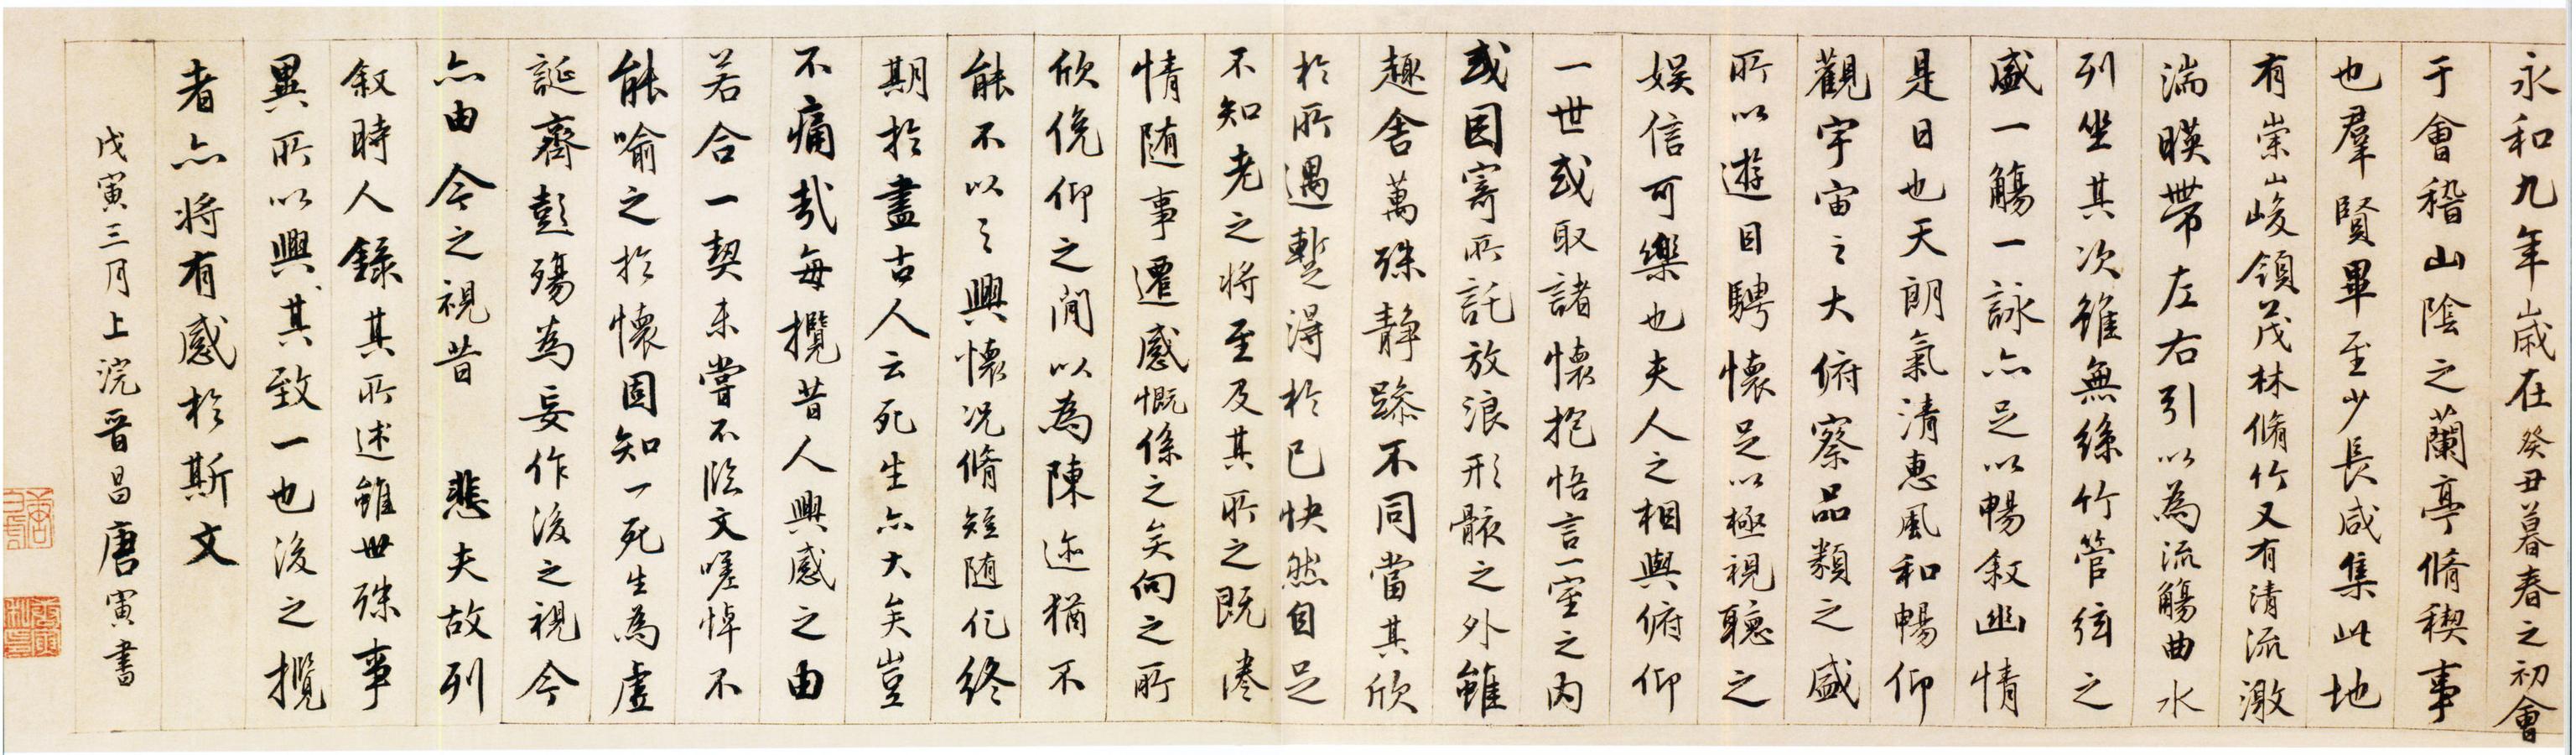 永和九年歲在癸丑暮春之初會
于會稽山陰之蘭亭脩稧事
也羣賢畢至少長咸集此地
有崇山峻領茂林脩竹又有清流激
湍暎帶左右引以為流觴曲水
列坐其次雖無絲竹管弦之
盛一觴一詠亦足以暢敘幽情
是日也天朗氣清惠風和暢仰
觀宇宙之大俯察品類之盛
所以遊目騁懷足以極視聽之
娛信可樂也夫人之相與俯仰
一世或取諸懷抱悟言一室之內
或因寄所託放浪形骸之外雖
趣舍萬殊靜躁不同當其欣
於所遇暫得於己快然自足
不知老之將至及其所之既惓
情隨事遷感慨係之矣向之所
欣俛仰之間以為陳迹猶不
能不以之興懷況脩短隨化終
期於盡古人云死生亦大矣豈
不痛哉每攬昔人興感之由
若合一契未嘗不臨文嗟悼不
能喻之於懷固知一死生為虛
誕齊彭殤為妄作後之視今
亦由今之視昔 悲夫故列
敘時人錄其所述雖世殊事
異所以興其致一也後之攬
者亦將有感於斯文
戊寅三月上浣晉昌唐寅書